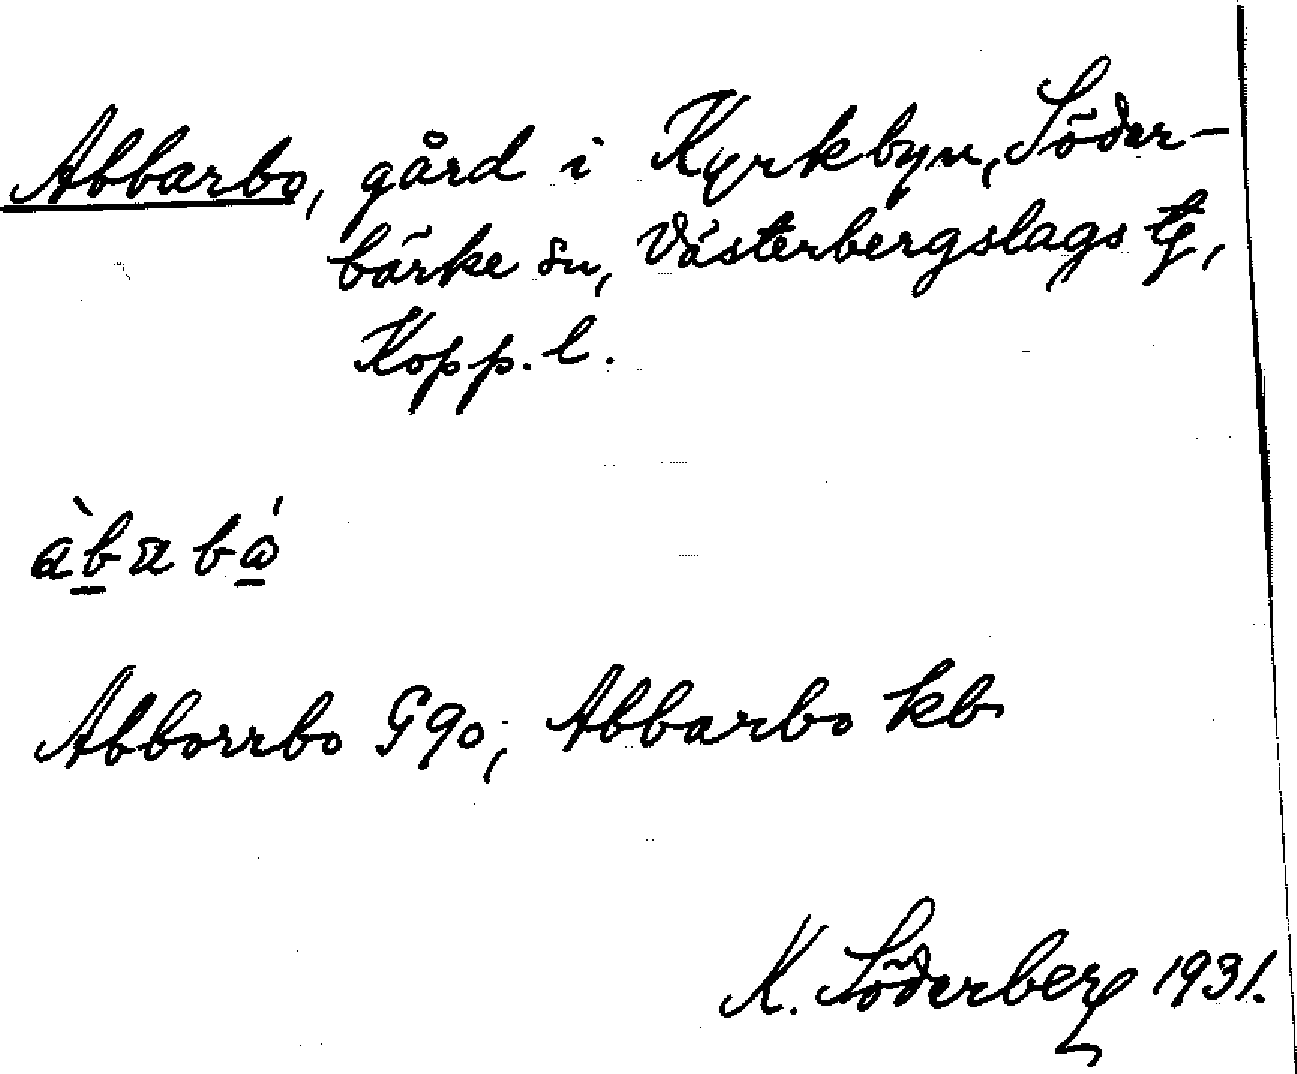 Abbarbo, gård i Kyrkbyn, Söder-
bärke sn, Västerbergslags tg,
Kopp. l.
àb̲abó̲
Abborrbo G90; Abbarbo kb
K. Söderberg 1931.